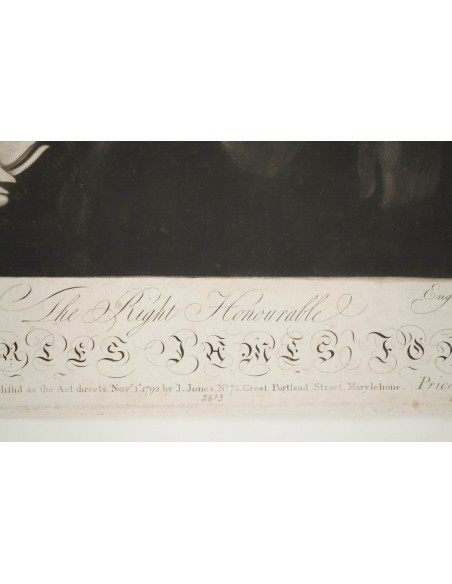 The Right Honourable
Eng
RLES JAMES FO
lish'd as the Act directs, Novr. 1st. 1792. by J. Jones No. 75, Great Portland Street, Marylebone.
Price
2613